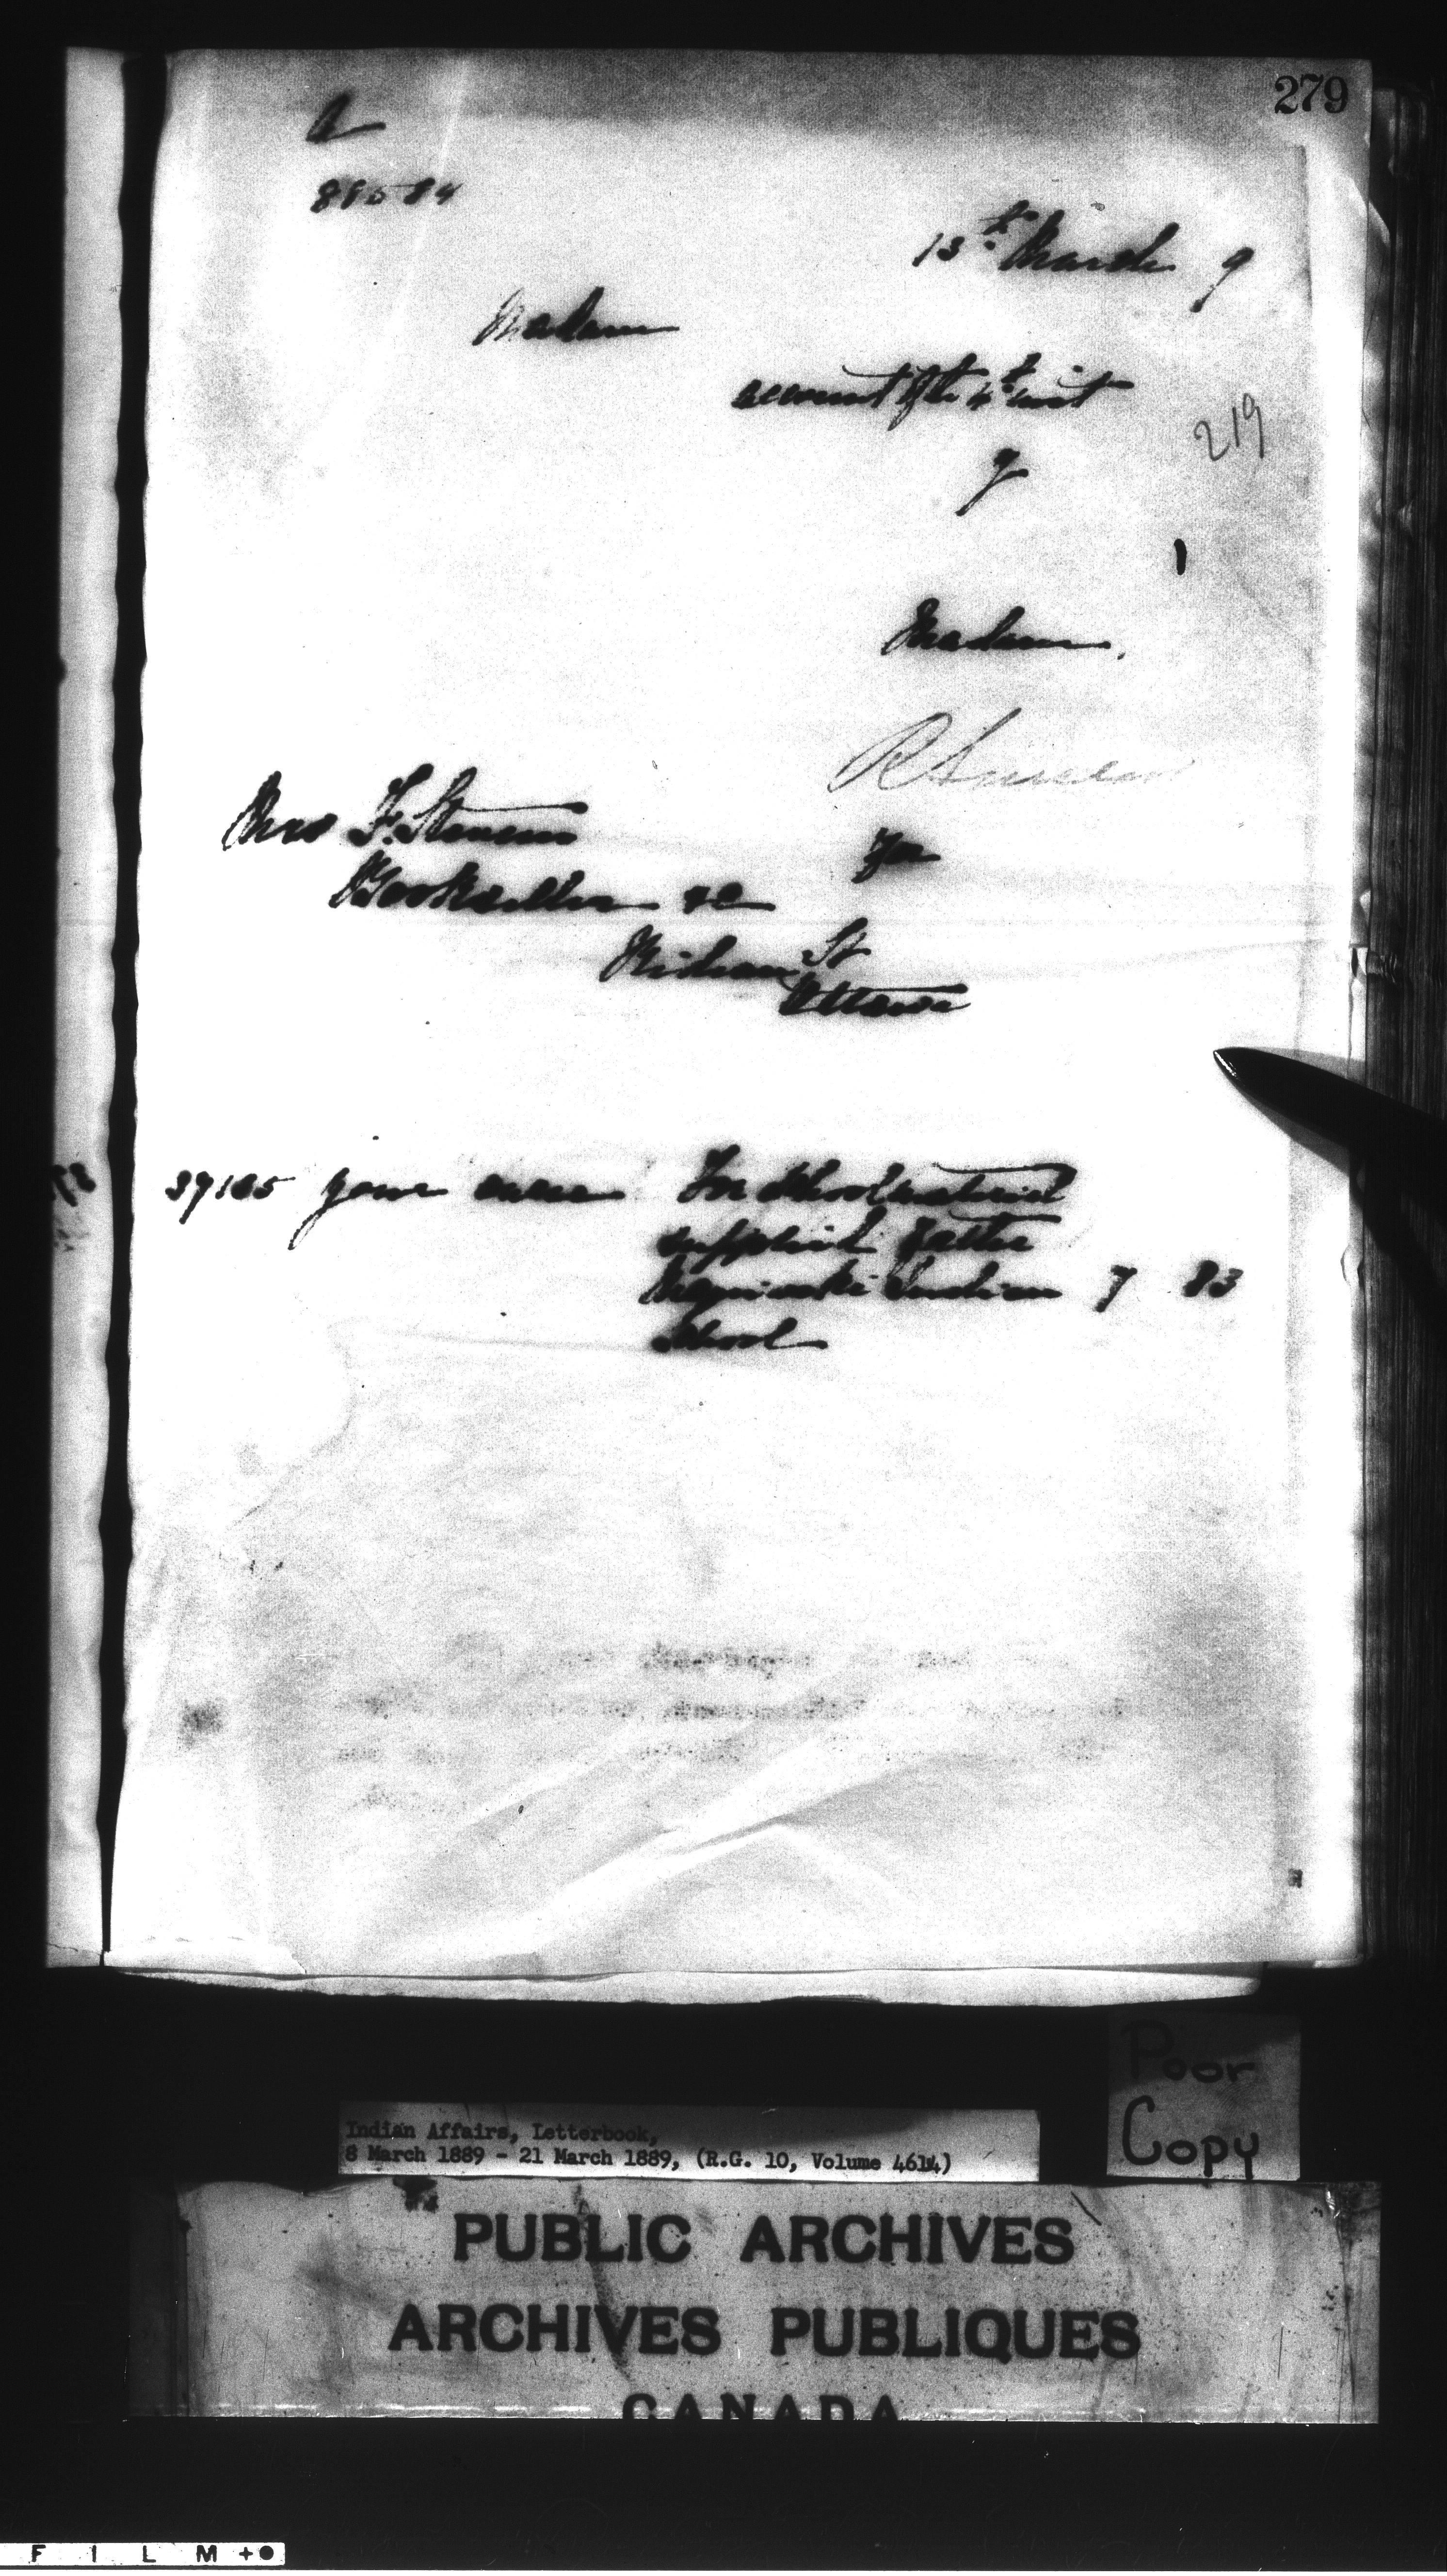 279
A
13th March 9
Madam
account of the 4th inst
219
y
1
Madam,
R Sinclair
Mrs F. Stevens
for
Bookseller &c
St
Ottawa
37165 your For School material
supplied for the
Maniwaki Indian 7 83
School
Poor
Copy
Indian Affairs, Letterbook,
8 March 1889 - 21 March 1889, (R.G. 10, Volume 4614)
PUBLIC ARCHIVES
ARCHIVES PUBLIQUES
CANADA
FILM